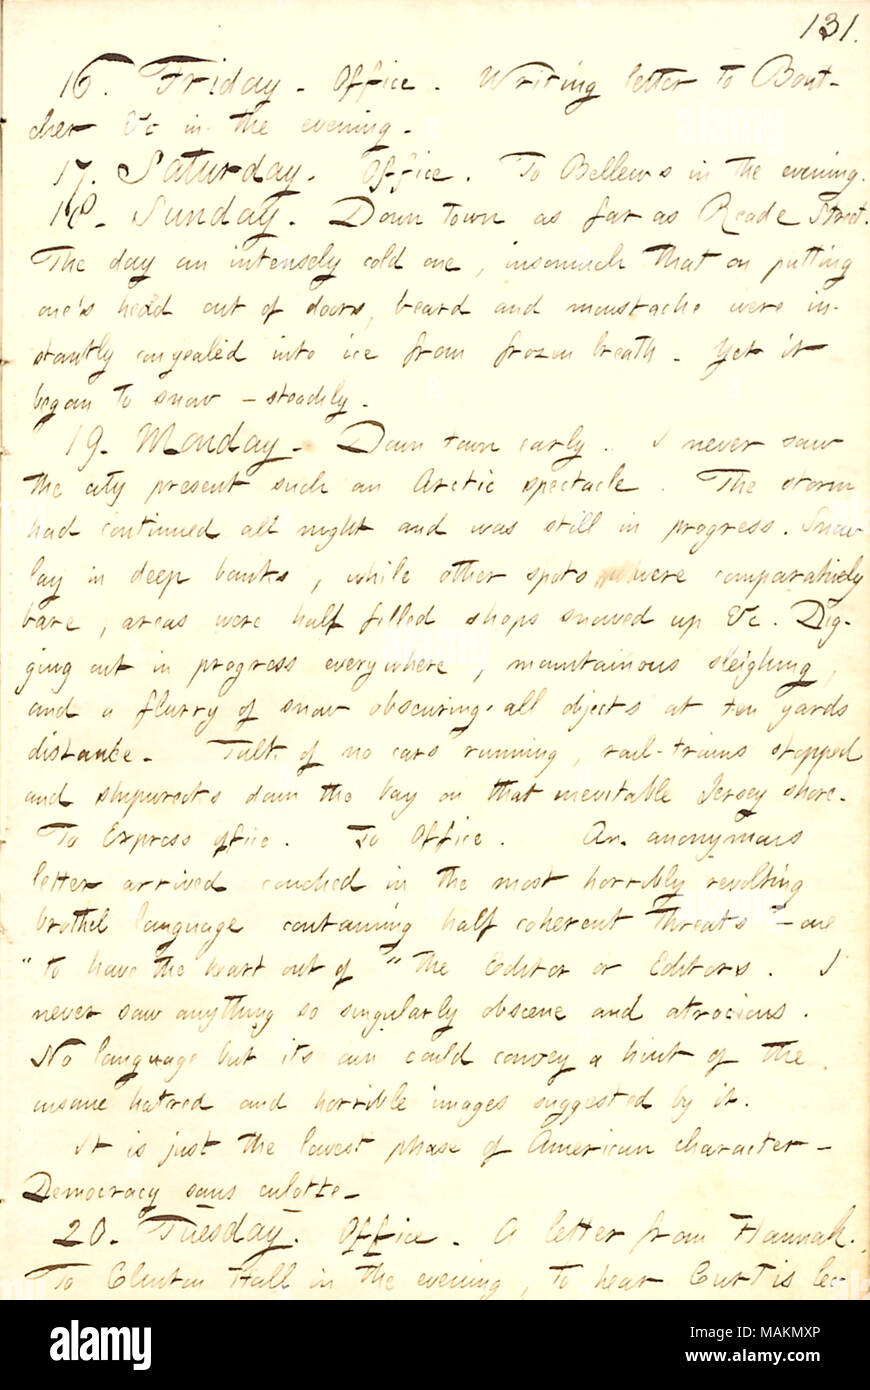 131.
16. Friday. Office. Writing letter to Bout-
cher &c in the evening.
17. Saturday. Office. To Bellews in the evening.
18. Sunday. Down town as far as Reade Street.
The day an intensely cold one, insomuch that on putting
one's head out of doors, beard and moustache were in-
stantly congealed into ice from frozen breath. Yet it
began to snow — steadily.
19. Monday. Down town early. I never saw
the city present such an Arctic spectacle. The storm
had continued all night and was still in progress. Snow
lay in deep banks, while other spots were comparatively
bare, areas were half filled shops snowed up &c. Dig-
ging out in progress everywhere, mountainous sleighing,
and a flurry of snow obscuring all objects at ten yards
distance. Talk of no cars running, rail-trains stopped
and shipwrecks down the bay on that inevitable Jersey shore.
To Express office. To Office. An anonymous
letter arrived couched in the most horribly revolting
brothel language containing half coherent threats — one
"to have the heart out of" the Editor or Editors. I
never saw anything so singularly obscene and atrocious.
No language but its own could convey a hint of the
insane hatred and horrible images suggested by it.
It is just the lowest phase of American character —
Democracy sans culotte.
20. Tuesday. Office. A letter from Hannah.
To Clinton Hall in the evening, to hear Curtis lec-
alamy
Image ID: MAKMXP
www.alamy.com